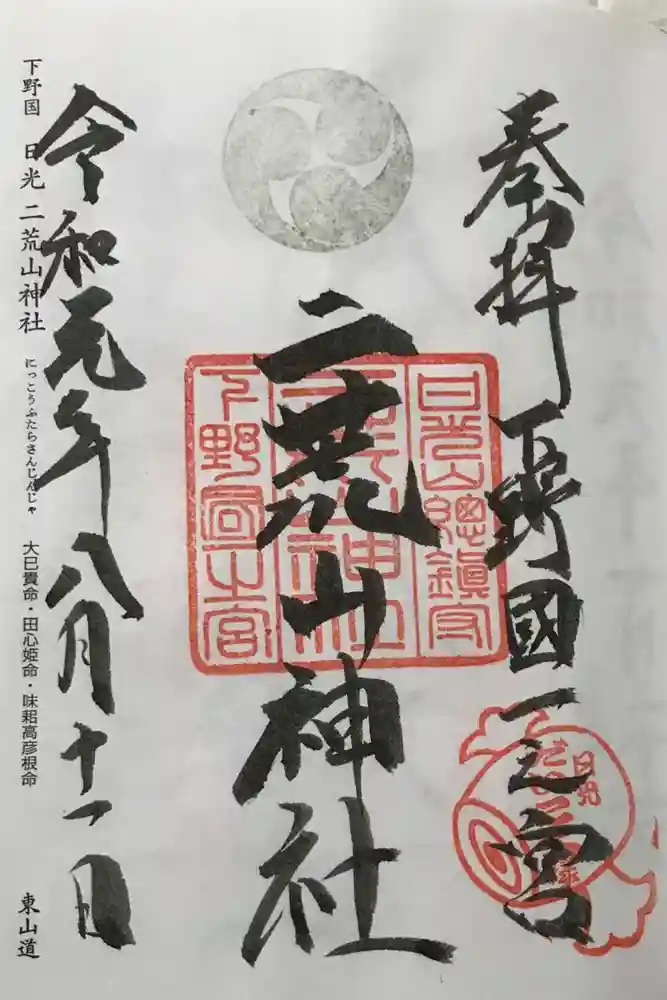 奉拝 下野國一之宮
日光
だい
日光山總鎮守
二荒山神社
二荒山神社
下野國一之宮
令和元年八月十一日
下野国 日光二荒山神社 にっこうふたらさんじんじゃ 大己貴命・田心姫命・味耜高彦根命 東山道